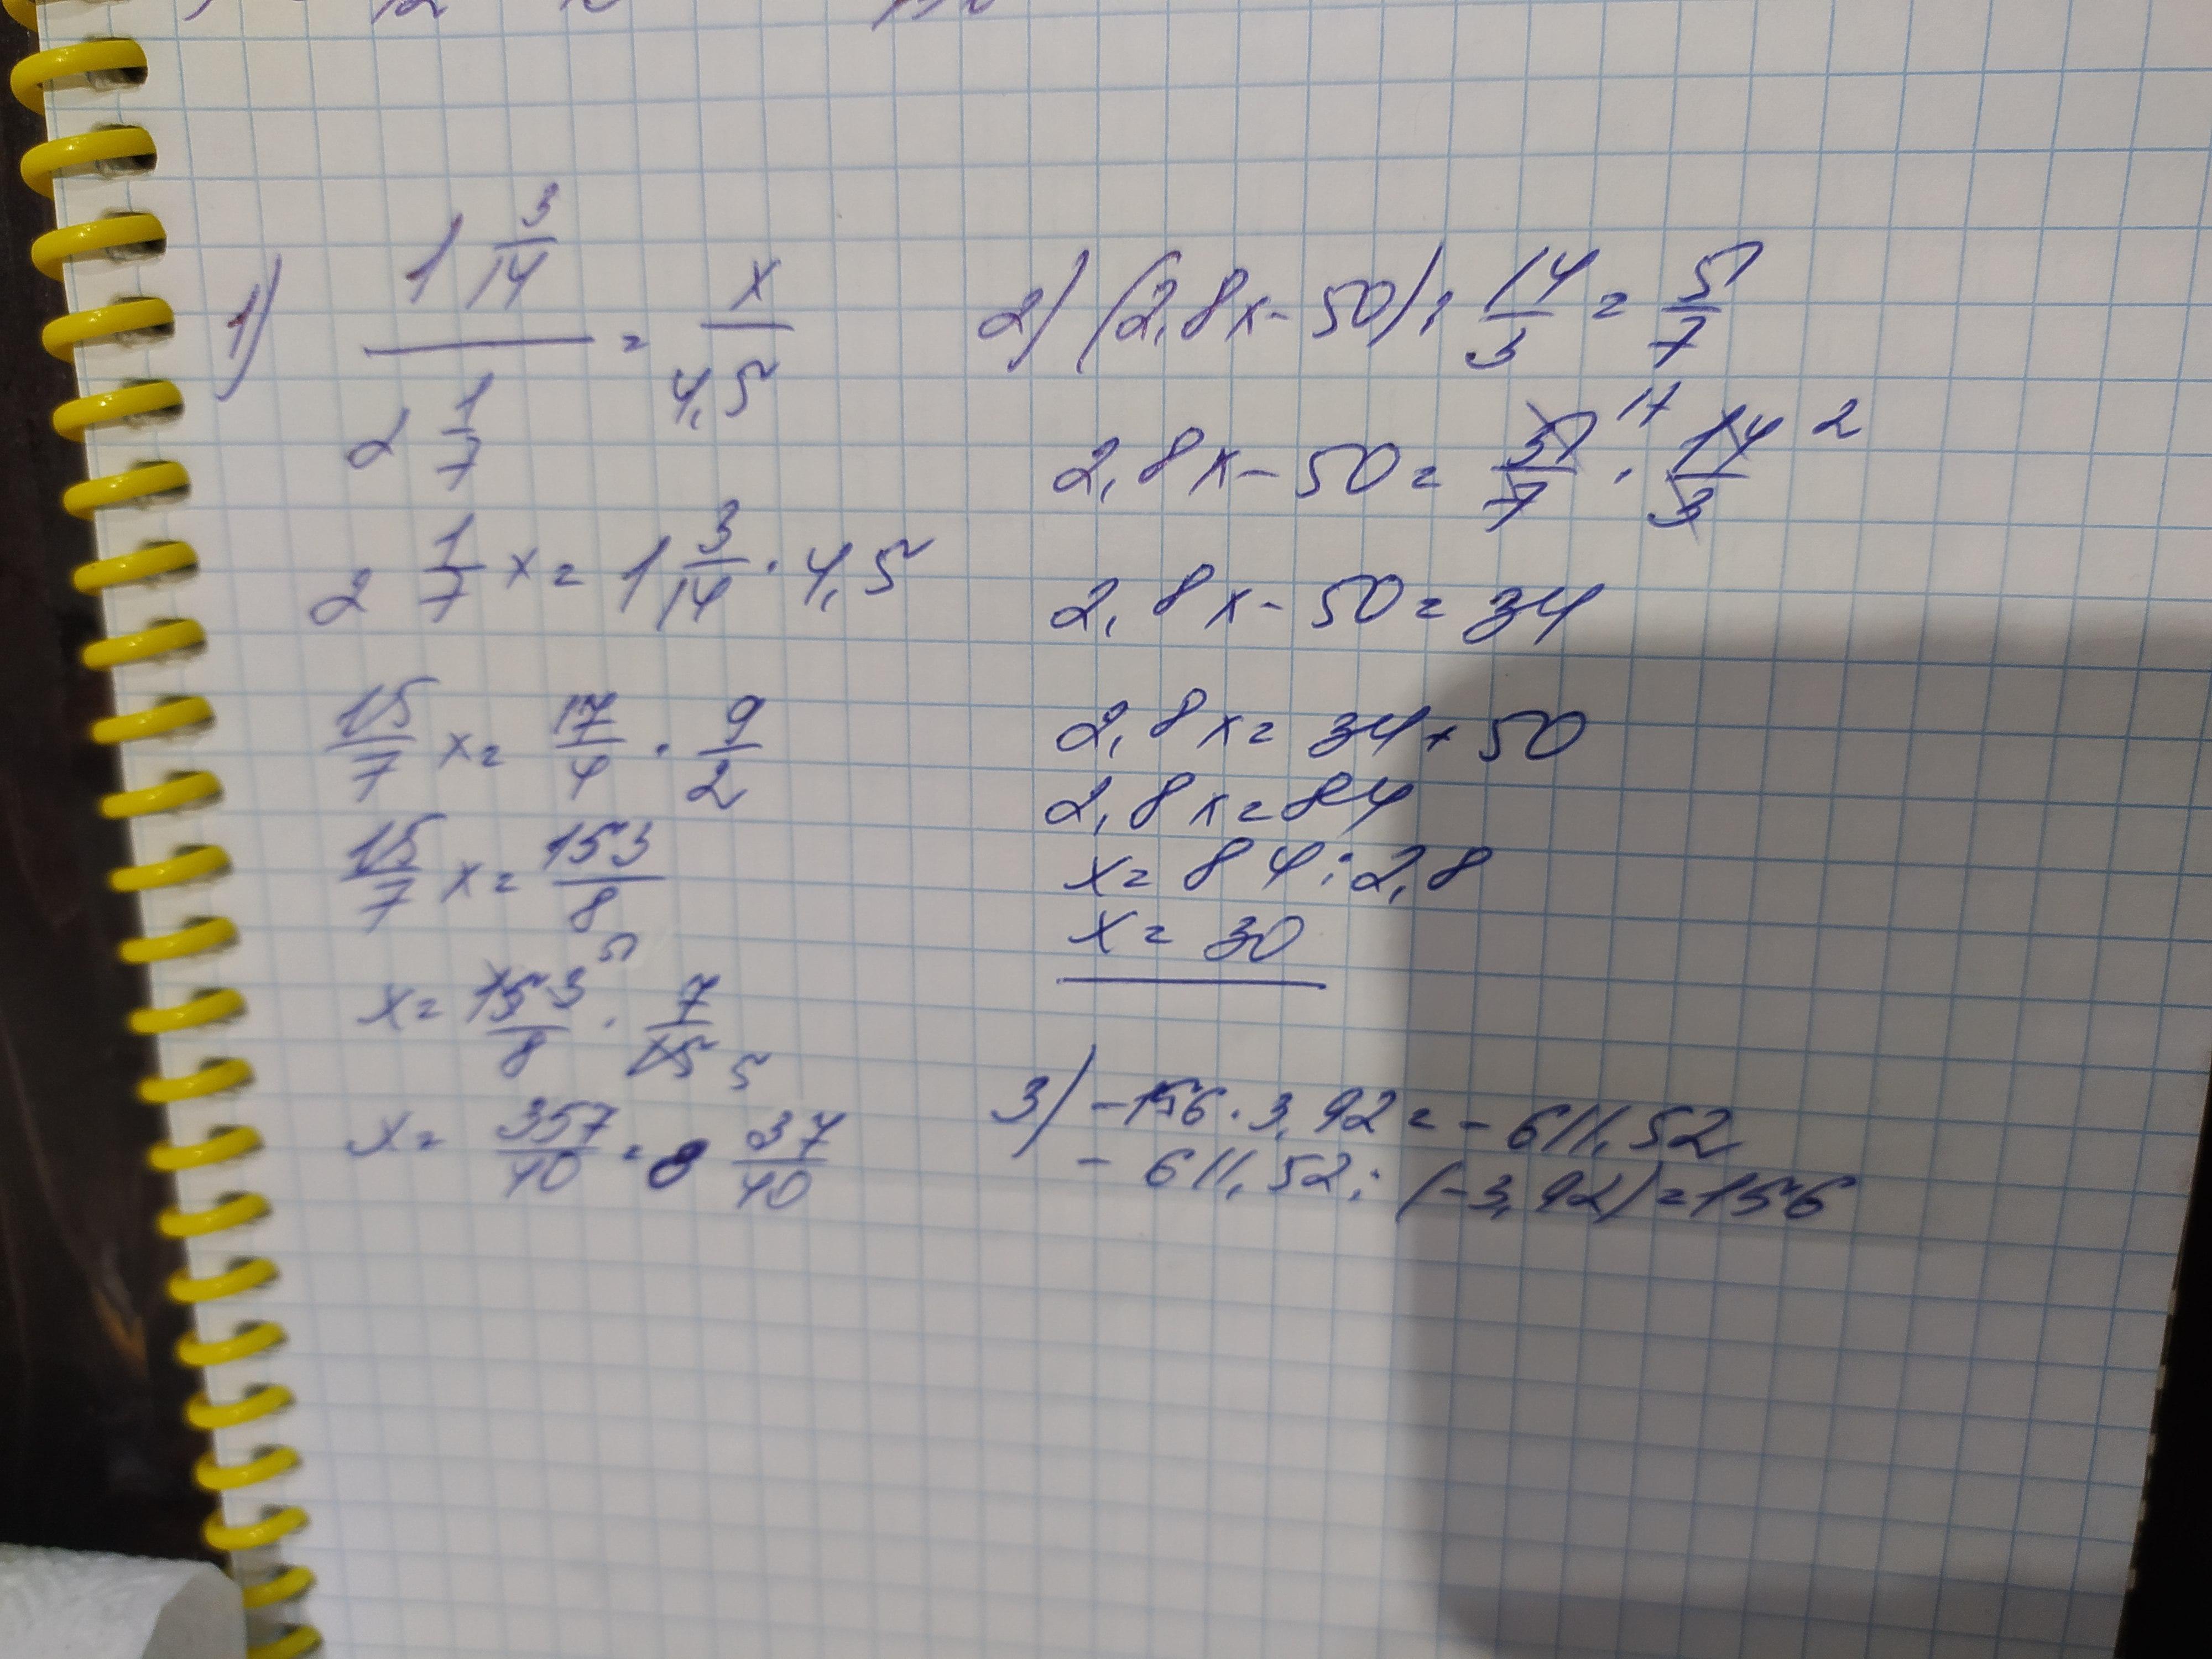 1) 1 3/14 / 2 1/7 = x / 4,5
2 1/7 x = 1 3/14 · 4,5
15/7 x = 17/4 · 9/2
15/7 x = 153/8
x = 153/8 51 · 7/15 5
x = 357/40 = 8 37/40
2) (2,8x - 50) : 14/3 = 51/7
2,8x - 50 = 51/7 17 · 14/3 2
2,8x - 50 = 34
2,8x = 34 + 50
2,8x = 84
x = 84 : 2,8
x = 30
3) -156 · 3,92 = -611,52
-611,52 : (-3,92) = 156